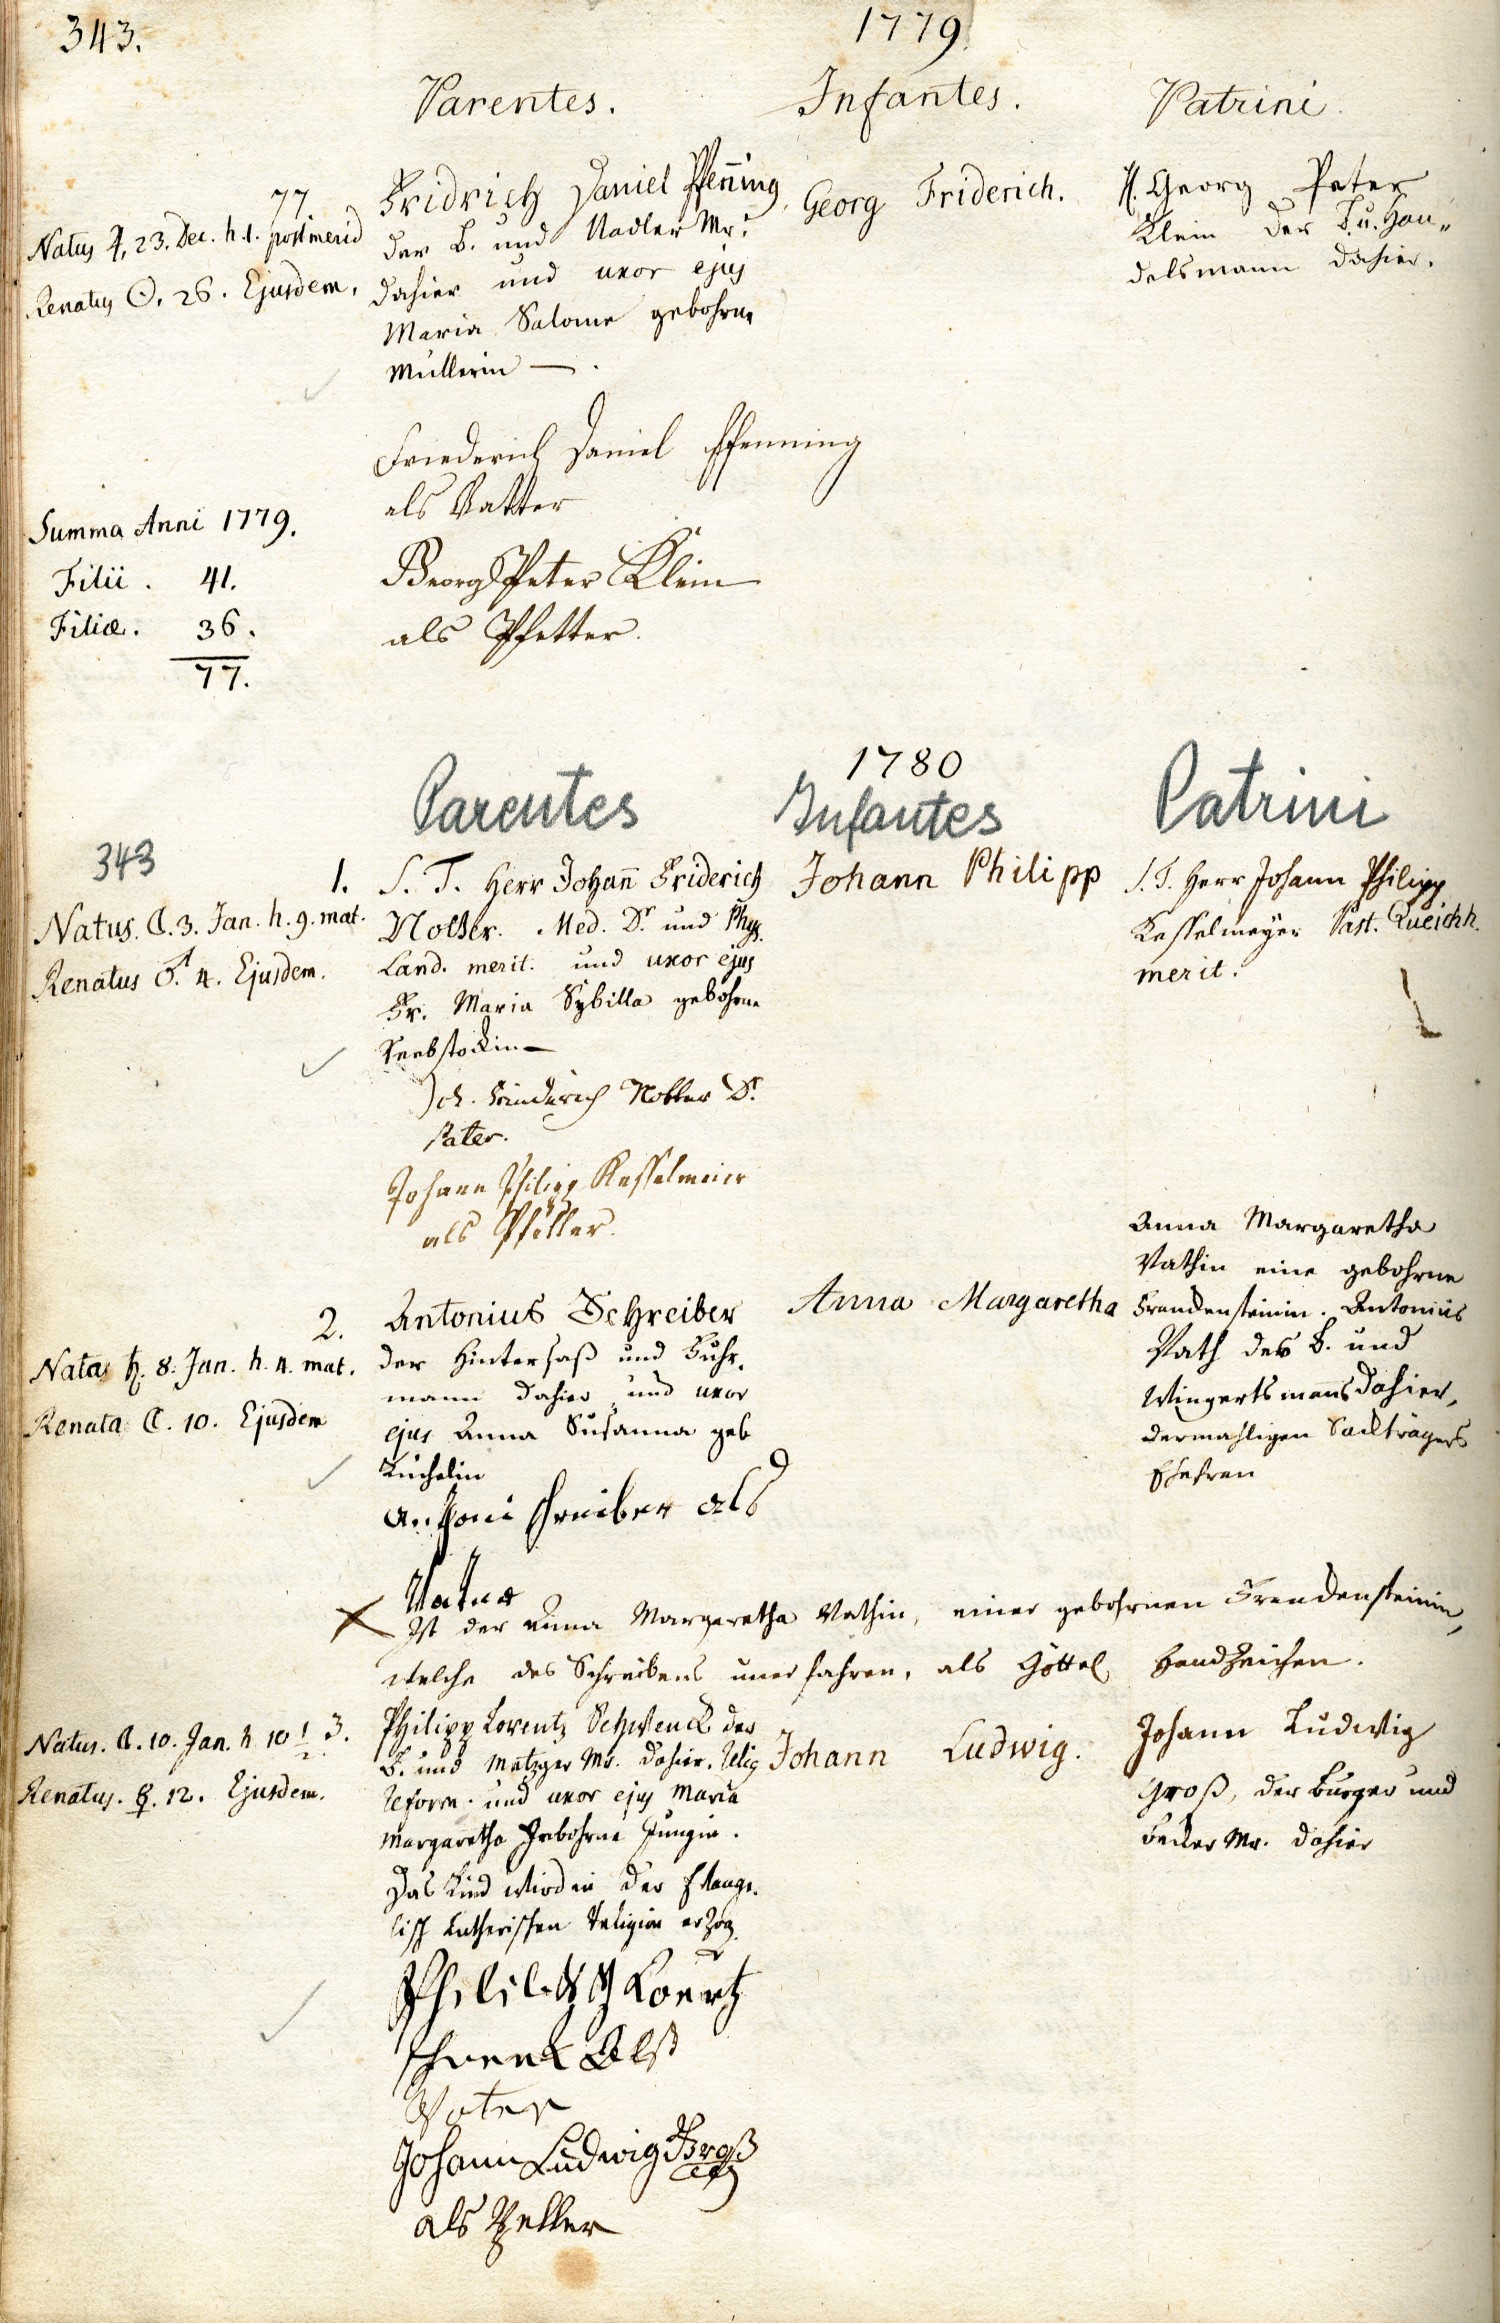 343.
1779.
Parentes. Infantes. Patrini.
77
Natus ♃. 23. Dec. h. 1. postmerid
Renatus ☉. 26. Ejusdem.
Fridrich Daniel Pfen̄ing
der B. und Nadler Mr.
dahier und uxor ejus
Maria Salome gebohrne
Müllerin — .
Georg Friderich.
H. Georg Peter
Klein der B. u. Han„
delsmann dahier.
Friederich Daniel Pfenning
als Vatter
Georg Peter Klein
als Pfetter.
Summa Anni 1779.
Filii . 41.
Filiæ. 36.
77.
1780
Parentes Infantes Patrini
343
1.
Natus. ☾. 3. Jan. h. 9. mat.
Renatus ♂. 4. Ejusdem.
S. T. Herr Johan̄ Friderich
Med. Dr. und Phys.
Land. merit. und uxor ejus
Fr. Maria Sybilla gebohrne
Johann Philipp
S. T. Herr Johann Philipp
Kesselmeyer Past. Queichh.
merit.
Joh. Friderich Dr.
pater.
Johann Philipp Kesselmeier
als Pfetter.
2.
Natas ♄. 8. Jan. h. 4. mat.
Renata ☾. 10. Ejusdem
Antonius Schreiber
der Hintersaß und Fuhr„
mann dahier und uxor
ejus Anna Susanna geb
Küchelin
Anna Margaretha
Anna Margaretha
Vathin eine gebohrne
Freudensteinin. Antonius
Vath des B. und
Wingertsmanns dahier,
dermahligen Sackträgers
Ehefrau
Antoni schreiber als
Vatter
X Ist der Anna Margaretha Vathin, einer gebohrnen Freudensteinin,
welche des Schreibens unerfahren, als Göttel Handzeichen.
3.
Natus. ☾. 10. Jan. h. 10 1/2
Renatus. ☿. 12. Ejusdem.
Philipp Lorentz Schwenck der
B. und Metzger Mr. dahier. Relig
Reform. und uxor ejus Maria
Margaretha gebohrne Jungin.
Das Kind wird in der Evange„
lisch Lutherischen Religion erzog.
Johann Ludwig.
Johann Ludwig
Groß, der Burger und
Becker Mr. dahier
schvenk Alß
Vater
Johann Ludwig Groß
als Petter